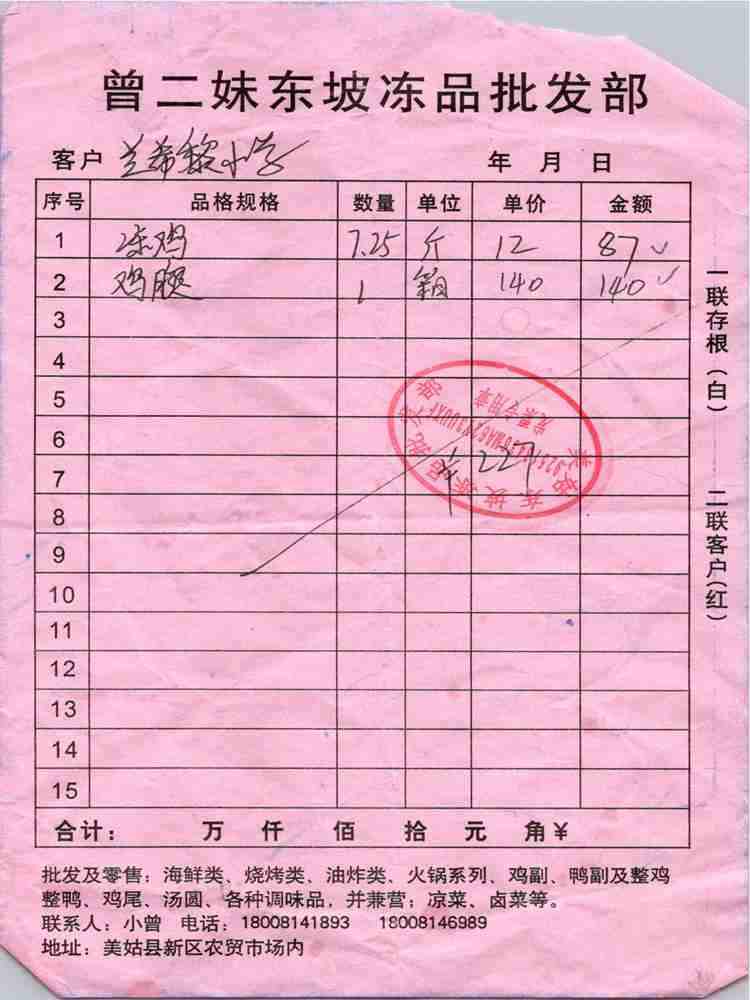 曾二妹东坡冻品批发部
客户 兰希黎小学 年 月 日
序号 品格规格 数量 单位 单价 金额
1 冻鸡 7.25 斤 12 87
2 鸡腿 1 箱 140 140
3
4
5
6
7 227
8
9
10
11
12
13
14
15
合计: 万 仟 佰 拾 元 角¥
批发及零售:海鲜类、烧烤类、油炸类、火锅系列、鸡副、鸭副及整鸡
整鸭、鸡尾、汤圆、各种调味品,并兼营:凉菜、卤菜等。
联系人:小曾 电话:18008141893 18008146989
地址:美姑县新区农贸市场内
一联存根(白) 二联客户(红)
发票专用章